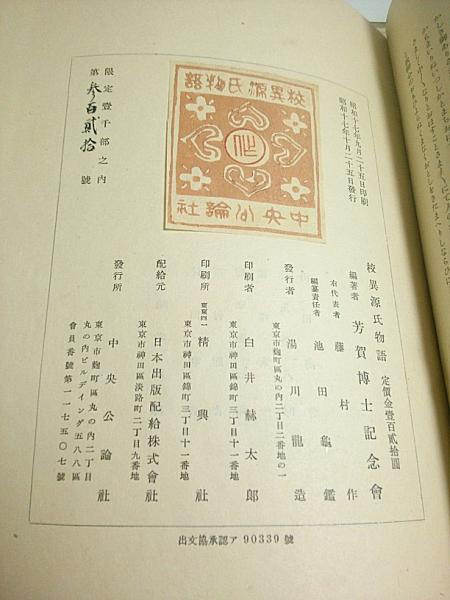 昭和十七年九月二十五日印刷
昭和十七年十月二十五日發行
校異源氏物語
中央公論社
限定壹千部之内
第參百貳拾號
校異源氏物語 定價金壹百貳拾圓
編著者 芳賀博士記念會
右代表者 藤村作
編纂責任者 池田龜鑑
東京市麴町區丸の内二丁目二番地の一
發行者 湯川龍造
東京市神田區錦町三丁目十一番地
印刷者 白井赫太郎
東京市神田區錦町三丁目十一番地
印刷所 東東四一 精興社
東京市神田區淡路町二丁目九番地
配給元 日本出版配給株式會社
發行所 中央公論社
東京市麴町區丸の内二丁目
丸の内ビルディング五八八區
會員番號 第一一七五〇七號
出文協承認ア 90339 號